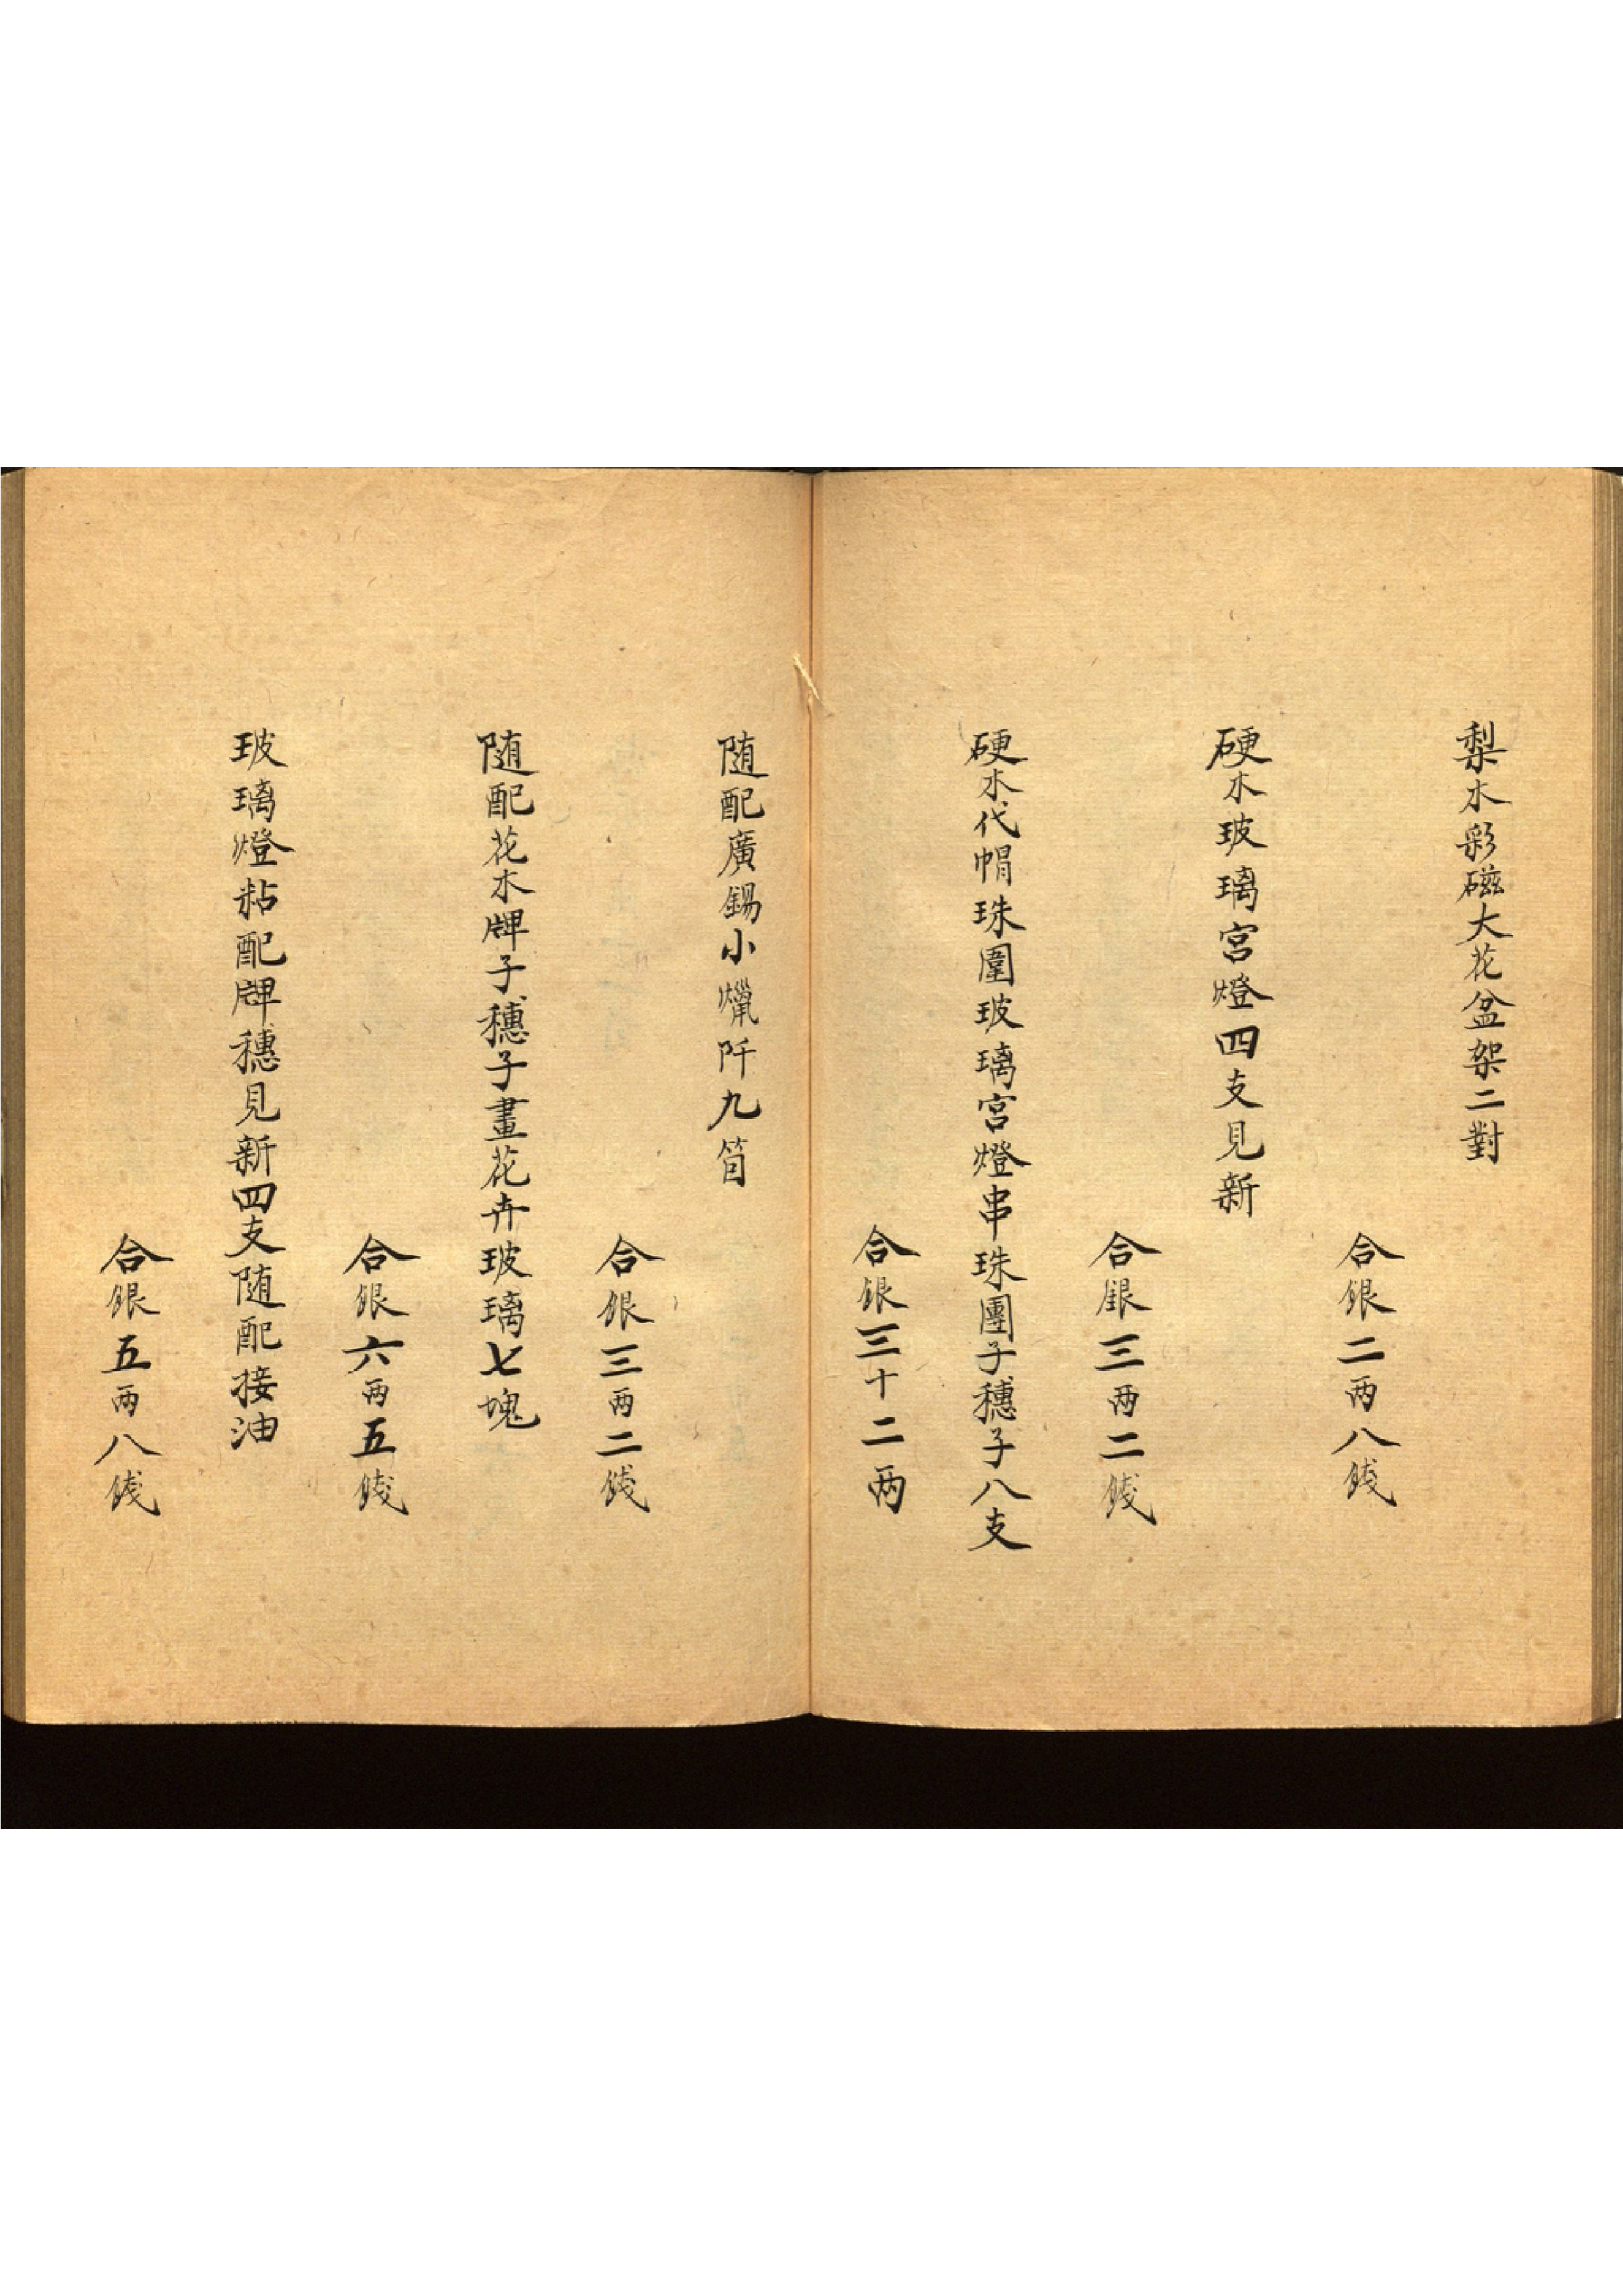 梨木彩磁大花盆架二對
合銀二两八錢
硬木玻璃宮燈四支見新
合銀三两二錢
硬木代帽珠圍玻璃宮燈串珠團子穗子八支
合銀三十二两
随配廣錫小爉阡九箇
合銀三两二錢
随配花木牌子穗子畫花卉玻璃七塊
合銀六两五錢
玻璃燈粘配牌穗見新四支随配接油
合銀五两八錢